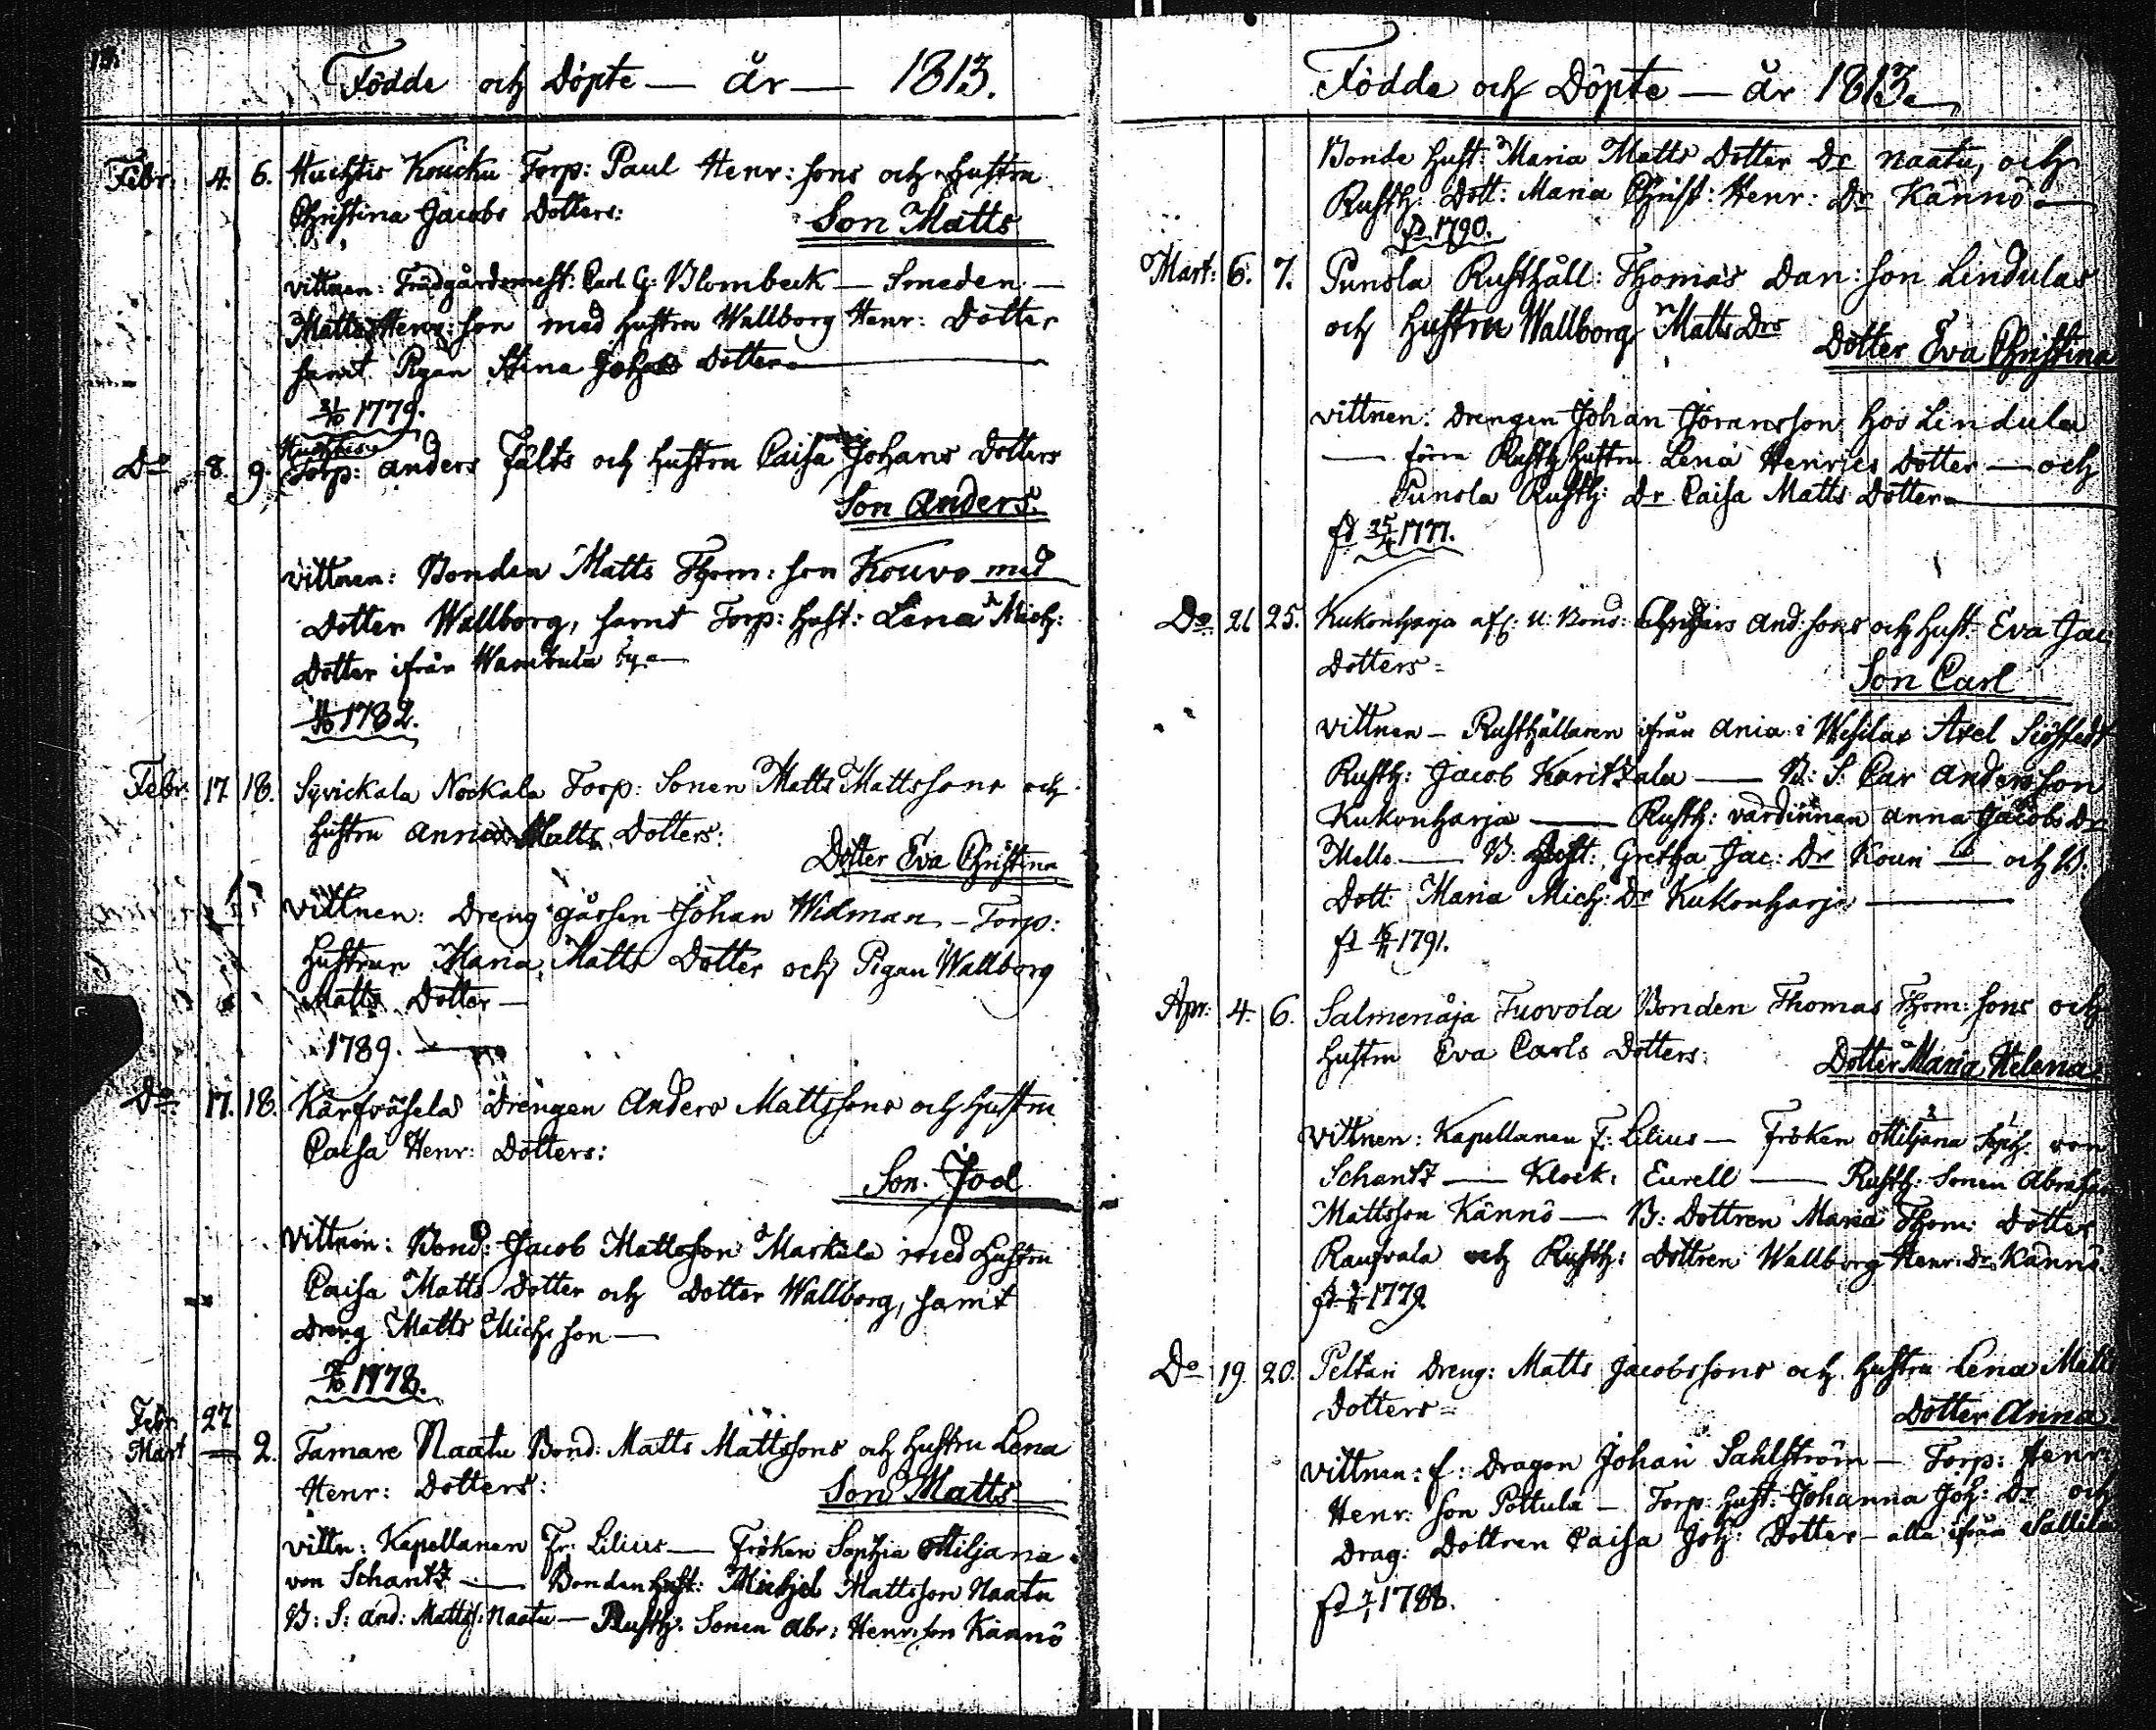 Födde och Döpte — år — 1813.
Febr: 4. 6. Huchtis Koucku Torp: Paul Henr: sons och hustru
Christina Jacobs Dotters:
Son Matts
vittnen: Trädgårdsmest: Carl G: Blombeck — Smeden —
Matts Henr: son med hustru Wallborg Henr: Dotter
samt Pigan Stina Johans Dotter
1779.
Huchtis
Do 8. 9. Torp: Anders Fälts och hustru Caisa Johans Dotters
Son Anders.
vittnen: Bonden Matts Thom: son Kouvo med
Dotter Wallborg, samt Torp: hust: Lena Mich:
Dotter ifrån Wambula by.
1782.
Febr. 17. 18. Syvickala Nockala Torp: Sonen Matts Mattssons och
hustru Anna Matts Dotters:
Dotter Eva Christina
vittnen: Dreng gåssen Johan Widman — Torp:
hustrun Maria Matts Dotter och Pigan Wallborg
Matts Dotter —
1789.
Do. 17. 18. Kärfväselä Drengen Anders Mattssons och hustru
Caisa Henr: Dotters:
Son. Joel
Vittnen: Bond: Jacob Mattsson Markula med hustru
Caisa Matts Dotter och Dotter Wallborg, samt
Dreng Matts Mich: son —
1778.
Febr 27
Mart — 2. Tamare Naatu Bond: Matts Mattssons och hustru Lena
Henr: Dotters:
Son Matts
vittn: Kapellanen Fr: Lilius — Fröken Sophia Ottiljana
von Schantz — Bonden hust: Michjel Mattsson Naatu
B: S: And: Matts s: Naatu — Rusth: Sonen Abr: Henr: son Kännö
Födde och Döpte — år 1813.
Bonde hust: Maria Matts Dotter Dr Naatu, och
Rusth: Dott: Maria Christ: Henr: Dr Kännö
fd 1790.
Mart: 6. 7. Punola Rusthåll: Thomas Dan: son Lindulas
och hustru Wallborg Matts Drs
Dotter Eva Christina
vittnen: Drengen Johan Jöransson hos Lindula
— förra Rusth hustru Lena Henrics Dotter — och
Punola Rusth: Dr Caisa Matts Dotter
fd 25 1777.
Do. 21 25. Kukonharja afsk: U: Bond: And: sons och hust: Eva Jac
Dotters =
Son Carl
vittnen — Rusthållaren ifrån Ania i Wesilax Axel Siöstedt
Rusth: Jacob Karitzala — B: S: Car Andersson
Kukonharja — Rusth: värdinnan Anna Jacobs Dr
Mello — B: Hust: Gretha Jac: Dr Kouri — och B:
Dott: Maria Mich: Dr Kukonharja —
fd 1791.
Apr: 4. 6. Salmenåja Tuovola Bonden Thomas Thom: sons och
hustru Eva Carls Dotters:
Dotter Maria Helena
Vittnen: Kapellanen F: Lilius — Fröken Ottiljana Soph: von
Schantz — Klock: Eurell — Rusth: Sonen Abraham
Mattsson Kännö — B: Dottren Maria Thom: Dotter
Raukvala och Rusth: Dottren Wallborg Henr: Dr Kännö.
fd 1779.
Do 19 20. Peltari Dreng: Matts Jacobssons och hustru Lena Matts
Dotters =
Dotter Anna
Vittnen: f: Dragon Johan Sahlström — Torp: Henr:
Henr: son Pottula — Torp: hust: Johanna Joh: Dr och
Drag: Dottren Caisa Joh: Dotter — alla ifrån Sallila
fd 1788.